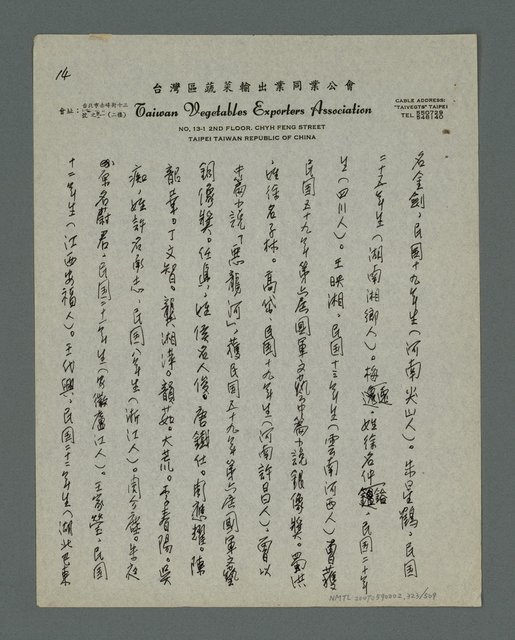 14
台灣區蔬菜輸出業同業公會
會址：台北市赤峰街十三號之一（二樓）
Taiwan Vegetables Exporters Association
CABLE ADDRESS:
"TAIVEGTS" TAIPEI
TEL 550728
548140
NO. 13-1 2ND FLOOR. CHYH FENG STREET
TAIPEI TAIWAN REPUBLIC OF CHINA
名金劍，民國十九年生（河南尖山人）。朱星鶴，民國
二十五年生（湖南湘鄉人）。梅遜，姓徐名仲，民國二十年
生（四川人）。王映湘，民國十三年生（雲南河西人）曾獲
民國五十九年第六屆國軍文藝中篇小說銀像獎。蜀洪
，姓徐名子林。高岱，民國十九年生（河南許昌人），曾以
中篇小說「惡龍河」，獲民國五十九年第六屆國軍文藝
銅像獎。任真，姓侯名人俊。唐鐵仕。周應耀。陳
韶華。丁文智。龔湘漢。韻茹。大荒。李春陽。吳
痴，姓許名承志，民國八年生（浙江人）。周介塵。朱夜
，原名尉君，民國二十一年生（安徽廬江人）。王家瑩，民國
十二年生（江西安福人）。王代興，民國二十二年生（湖北巴東
NMTL 20070590002, 323/509